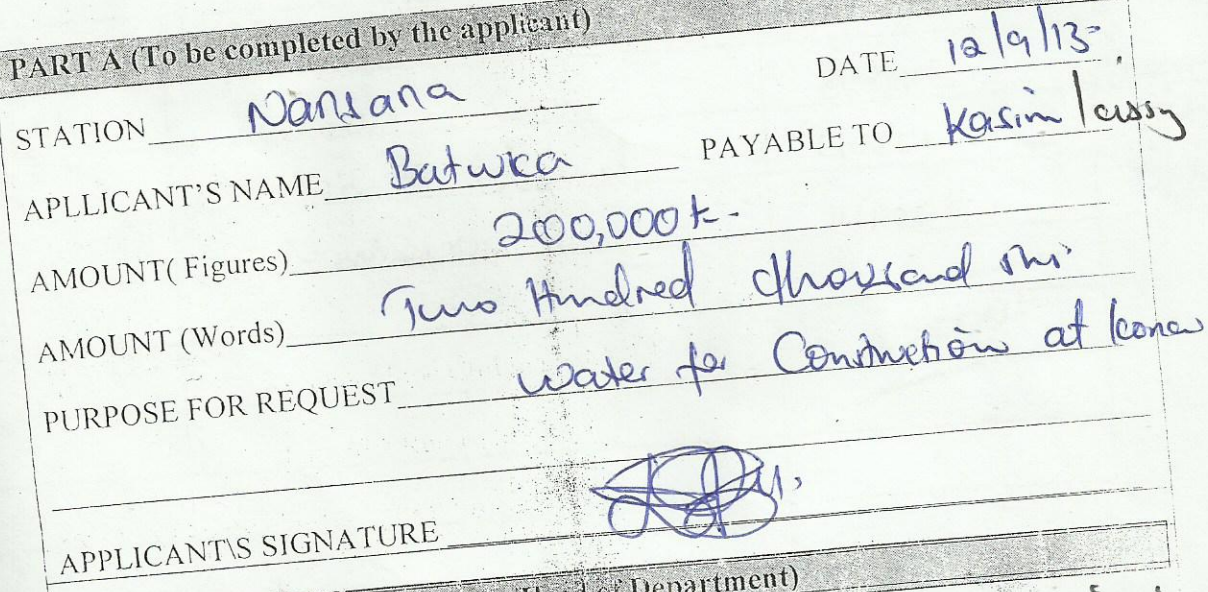 PART A (To be completed by the applicant)
DATE 12/9/13
STATION Nansana
APLLICANT'S NAME Batuka PAYABLE TO Kasim / cissy
AMOUNT( Figures) 200,000
AMOUNT (Words) Two Hundred thousand shs.
PURPOSE FOR REQUEST water for Construction at
APPLICANT\S SIGNATURE
of Department)